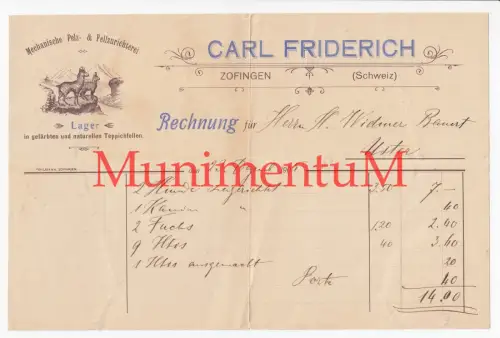 Mechanische Pelz- & Fellzurichterei
CARL FRIDERICH
ZOFINGEN (Schweiz)
Lager
in gefärbten und naturellen Teppichfellen.
Rechnung für Herrn H. Widmer
Uster
MunimentuM
2 Hunde 3.50 7 —
1 " 60
2 Fuchs 1.20 2.40
9 Iltis 40 3.60
1 Iltis ausgemacht 20
Porto 40
14.00